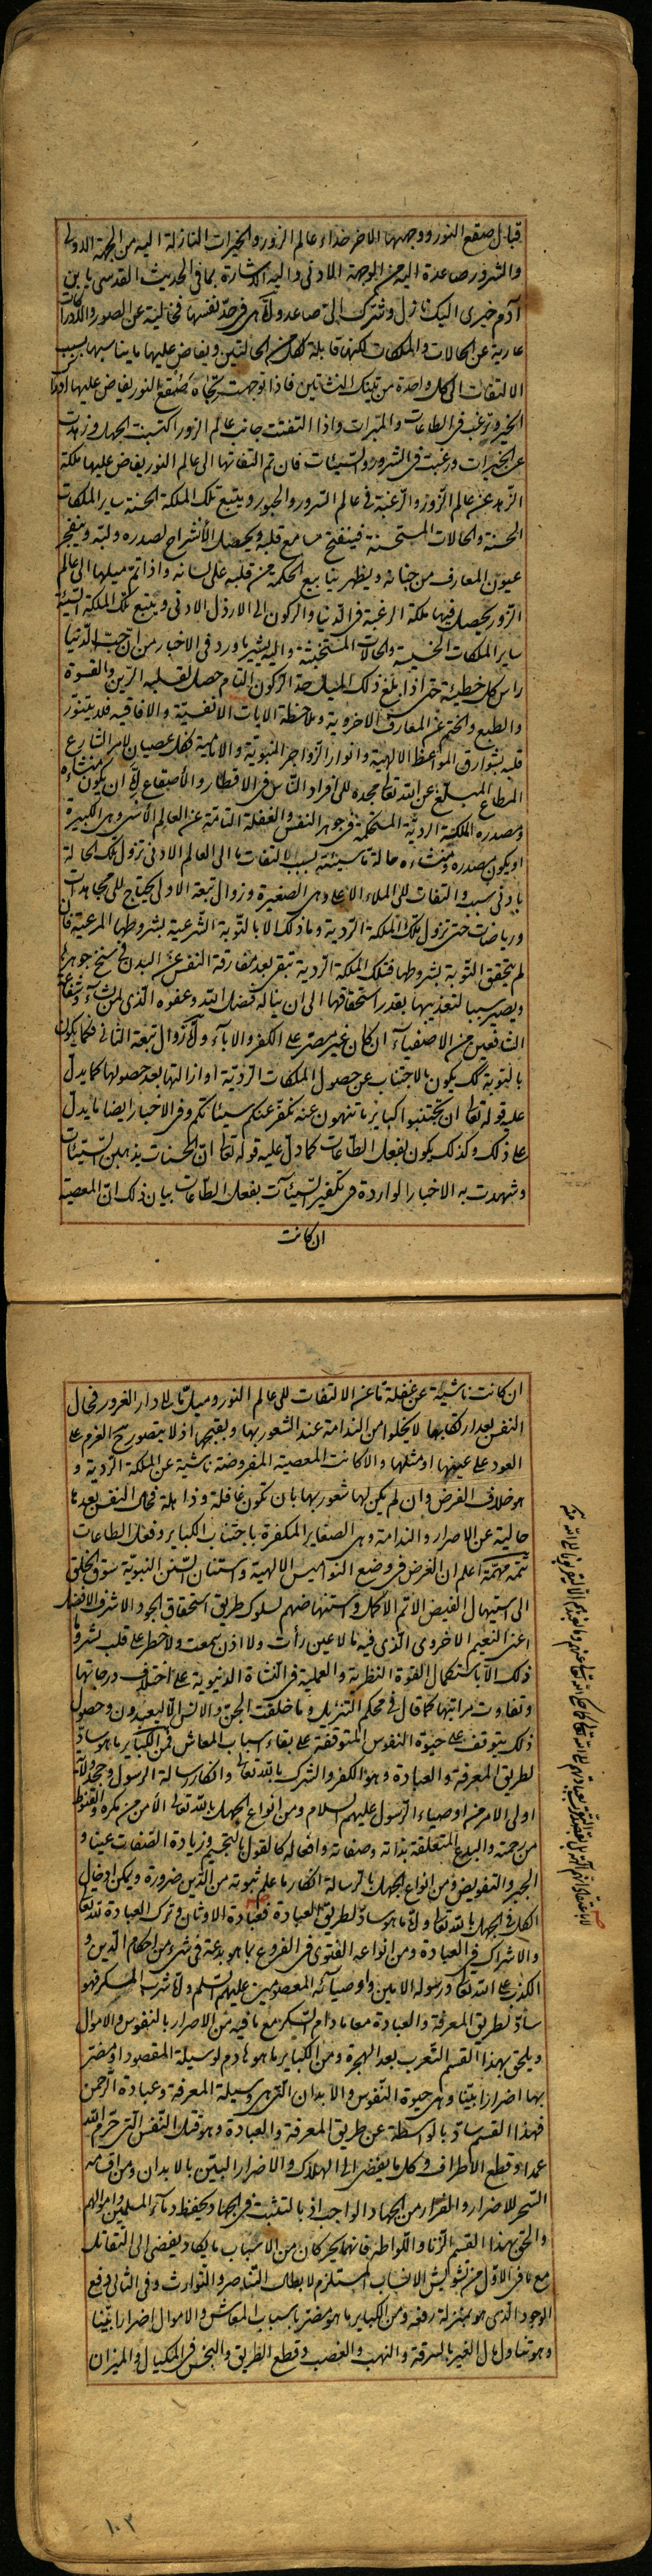 قبال صقع النور ووجهها الاخر حذاء عالم الزور والخيرات النازلة اليه من الجهة الاولى
والشرور صاعدة اليه من الوجهة الادنى واليه الاشارة بما فى الحديث القدسى يا بن
آدم خيرى اليك نازل وشرك الىّ صاعد ولانها فى حدّ نفسها خالية عن الصور والكمالات
عارية عن الحالات والملكات لكنها قابلة لكل من الحالتين ويفاض عليها ما يناسبها بسبب
الالتفات الى كل واحدة من تينك النشأتين فاذا توجهت تجاه صقع النور يفاض عليها
الخير وترغب فى الطاعات والمبرات واذا التفتت جانب عالم الزور اكتسبت الجهل وزهدت
عن الخيرات ورغبت فى الشرور والسيئات فان تم التفاتها الى عالم النور يفاض عليها ملكة
الزهد عن عالم الزور والرغبة فى عالم السرور والحبور ويتبع تلك الملكة الحسنة ساير الملكات
الحسنة والحالات المستحسنة فينفتح مسامع قلبه ويحصل الانشراح لصدره ولبّه وينفجر
عيون المعارف من جنانه ويظهر ينابيع الحكمة من قلبه على لسانه واذا تم ميلها الى عالم
الزور يحصل فيها ملكة الرغبة فى الدنيا والركون الى الارذل الادنى ويتبع تلك الملكة السيئة
ساير الملكات الخسيسة والحالات المستخبثة واليه يشير ما ورد فى الاخبار من ان حبّ الدنيا
راس كل خطيئة حتى اذا بلغ ذلك الميل حدّ الركون التام حصل لقلبه الرّين والقسوة
والطبع والختم عن المعارف الاخروية وملاحظة الايات الانفسيّة والافاقيه فلا يتنوّر
قلبه بشوارق المواعظ الالهية وانوار الزواجر النبوية والامامية فكل عصيان لامر الشارع
المطاع المبلّغ عن الله تعالى مجده الى افراد الناس فى الاقطار والاصقاع اما ان يكون منشاءه
ومصدره الملكة الرديّة المستحكمة فى جوهر النفس والغفلة التامّة عن العالم الاسنى وهى الكبيرة
او يكون مصدره ومنشاءه حالة ما سيئة بسبب التفات ما الى العالم الادنى تزول تلك الحالة
بادنى سبب والتفات الى الملاء الاعلى وهى الصغيرة وزوال تبعة الاول يحتاج الى مجاهدات
ورياضات حتى تزول تلك الملكة الردية وما ذلك الا بالتوبة الشرعية بشروطها المرعية فان
لم يتحقق التوبة بشروطها فتلك الملكة الردية تبقى بعد مفارقة النفس عن البدن فى سنخ جوهرها
ويصير سببا لتعذيبها بقدر استحقاقها الى ان يناله فضل الله وعفوه الذى لمن يشاء وشفاعة
الشافعين من الاصفياء ان كان غير مصرّ على الكفر والاباء واما زوال تبعة الثانى فكما يكون
بالتوبة كك يكون بالاجتناب عن حصول الملكات الرديّة او ازالتها بعد حصولها كما يدلّ
عليه قوله تعالى ان تجتنبوا كبائر ما تنهون عنه نكفر عنكم سيئاتكم وفى الاخبار ايضا ما يدلّ
على ذلك وكذلك يكون بفعل الطاعات كما دلّ عليه قوله تعالى ان الحسنات يذهبن السيّئات
وشهدت به الاخبار الواردة فى تكفير السيئات بفعل الطاعات بيان ذلك ان المعصية
ان كانت
ان كانت ناشية عن غفلة ما عن الالتفات الى عالم النور وميل ما الى دار الغرور فحال
النفس بعد ارتكابها لا يخلوا من الندامة عند الشعور بها وبقبحها اذ لا يتصور ح العزم على
العود على عينها او مثلها والا كانت المعصية المفروضة ناشية عن الملكة الردية و
هو خلاف الفرض وان لم يكن لها شعور بها بان كون غافلة وذاهلة فحال النفس بعدها
خالية عن الاصرار والندامة وهى الصغاير المكفرة باجتناب الكباير وفعل الطاعات
تتمة مهمّة اعلم ان الغرض فى وضع النواميس الالهية واستنان السنن النبوية سوق الخلق
الى استيهال الفيض الاتم الاكمل واستنهاضهم لسلوك طريق استحقاق الجود الاشرف الافضل
اعنى النعيم الاخروى الذى فيه ما لا عين رأت ولا اذن سمعت ولا خطر على قلب بشر وما
ذلك الا باستكمال القوة النظرية والعملية فى النشاة الدنيوية على اختلاف درجاتها
وتفاوت مراتبها كما قال فى محكم التنزيل وما خلقت الجن والانس الا ليعبدون وحصول
ذلك يتوقف على حيوة النفوس المتوقفة على بقاء اسباب المعاش فمن الكباير ما هو سادّ
لطريق المعرفة والعبادة وهو الكفر والشرك بالله تعالى وانكار رسالة الرسول وجحد ولاية
اولى الامر من اوصياء الرسول عليهم السلام ومن انواع الجهل بالله تعالى الامن من مكره والقنوط
من رحمته والبدع المتعلقة بذاته وصفاته وافعاله كالقول بالتجسيم وزيادة الصفات عينا و
الجبر والتفويض ومن انواع الجهل بالرسالة انكار ما علم ثبوته من الدين ضرورة ويمكن ادخال
الكل فى الجهل بالله تعالى واما ما هو سادّ لطريق العبادة فعبادة الاوثان وترك العبادة لله تعالى
والاشراك فى العبادة ومن انواعه الفتوى فى الفروع بما هو بدعة فى شىء من احكام الدين و
الكذب على الله تعالى ورسوله الامين واوصيائه المعصومين عليهم السلم واما شرب المسكر فهو
سادّ لطريق المعرفة والعبادة معا ما دام السكر مع ما فيه من الاضرار بالنفوس والاموال
ويلحق بهذا القسم التعرب بعد الهجرة ومن الكباير ما هو هادم لوسيلة المقصود او مضر
بها اضرارا بيّنا وهى حيوة النفوس والابدان التى هى وسيلة المعرفة وعبادة الرحمن
فهذا القسم سادّ بالواسطة عن طريق المعرفة والعبادة وهو قتل النفس التى حرّم الله
عمدا وقطع الاطراف وكل ما يفضى الى الهلاك والاضرار البيّن بالابدان ومن اقسامه
السحر للاضرار والفرار من الجهاد الواجب اذ بالتثبت فى الجهاد يحفظ دماء المسلمين واموالهم
والحق بهذا القسم الزنا واللواطه فانهما يحركان من الاسباب ما يكاد يفضى الى التقاتل
مع ما فى الاول من تشويش الانساب المستلزم لابطال التناصر والتوارث وفى الثانى دفع
الوجود الذى هو بمنزلة رفعه ومن الكباير ما هو مضرّ باسباب المعاش والاموال اضرارا بيّنا
وهو تناول مال الغير بالسرقة والنهب والغصب وقطع الطريق والبخس فى المكيال والميزان
١٠٣